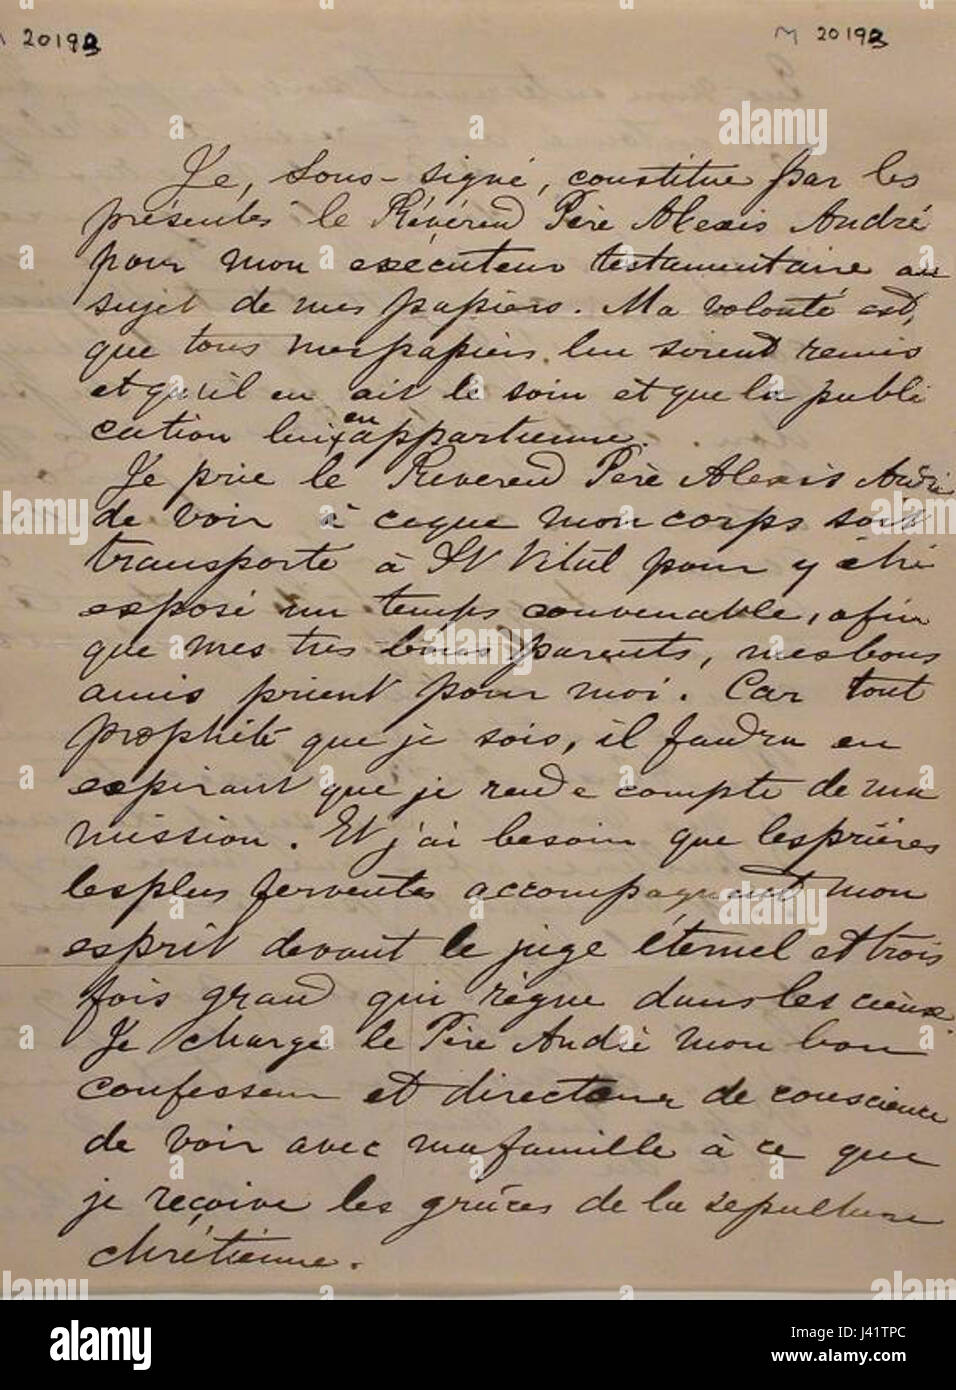 M 20193 M 20193
Je, sous-signé, constitue par les
présentes le Révérend Père Alexis André
pour mon exécuteur testamentaire au
sujet de mes papiers. Ma volonté est,
que tous mes papiers lui soient remis
et qu'il en ait le soin et que la publi
cation lui en appartienne.
Je prie le Reverend Père Alexis André
de voir à ceque mon corps soit
transporté à St Vital pour y être
exposé un temps convenable, afin
que mes très bons parents, mes bons
amis prient pour moi. Car tout
prophète que je sois, il faudra en
expirant que je rende compte de ma
mission. Et j'ai besoin que les prières
les plus ferventes accompagnent mon
esprit devant le juge éternel et trois
fois grand qui règne dans les cieux.
Je charge le Père André mon bon
confesseur et directeur de conscience
de voir avec ma famille à ce que
je reçoive les grâces de la sepulture
chrétienne.
alamy
Image ID: J41TPC
www.alamy.com